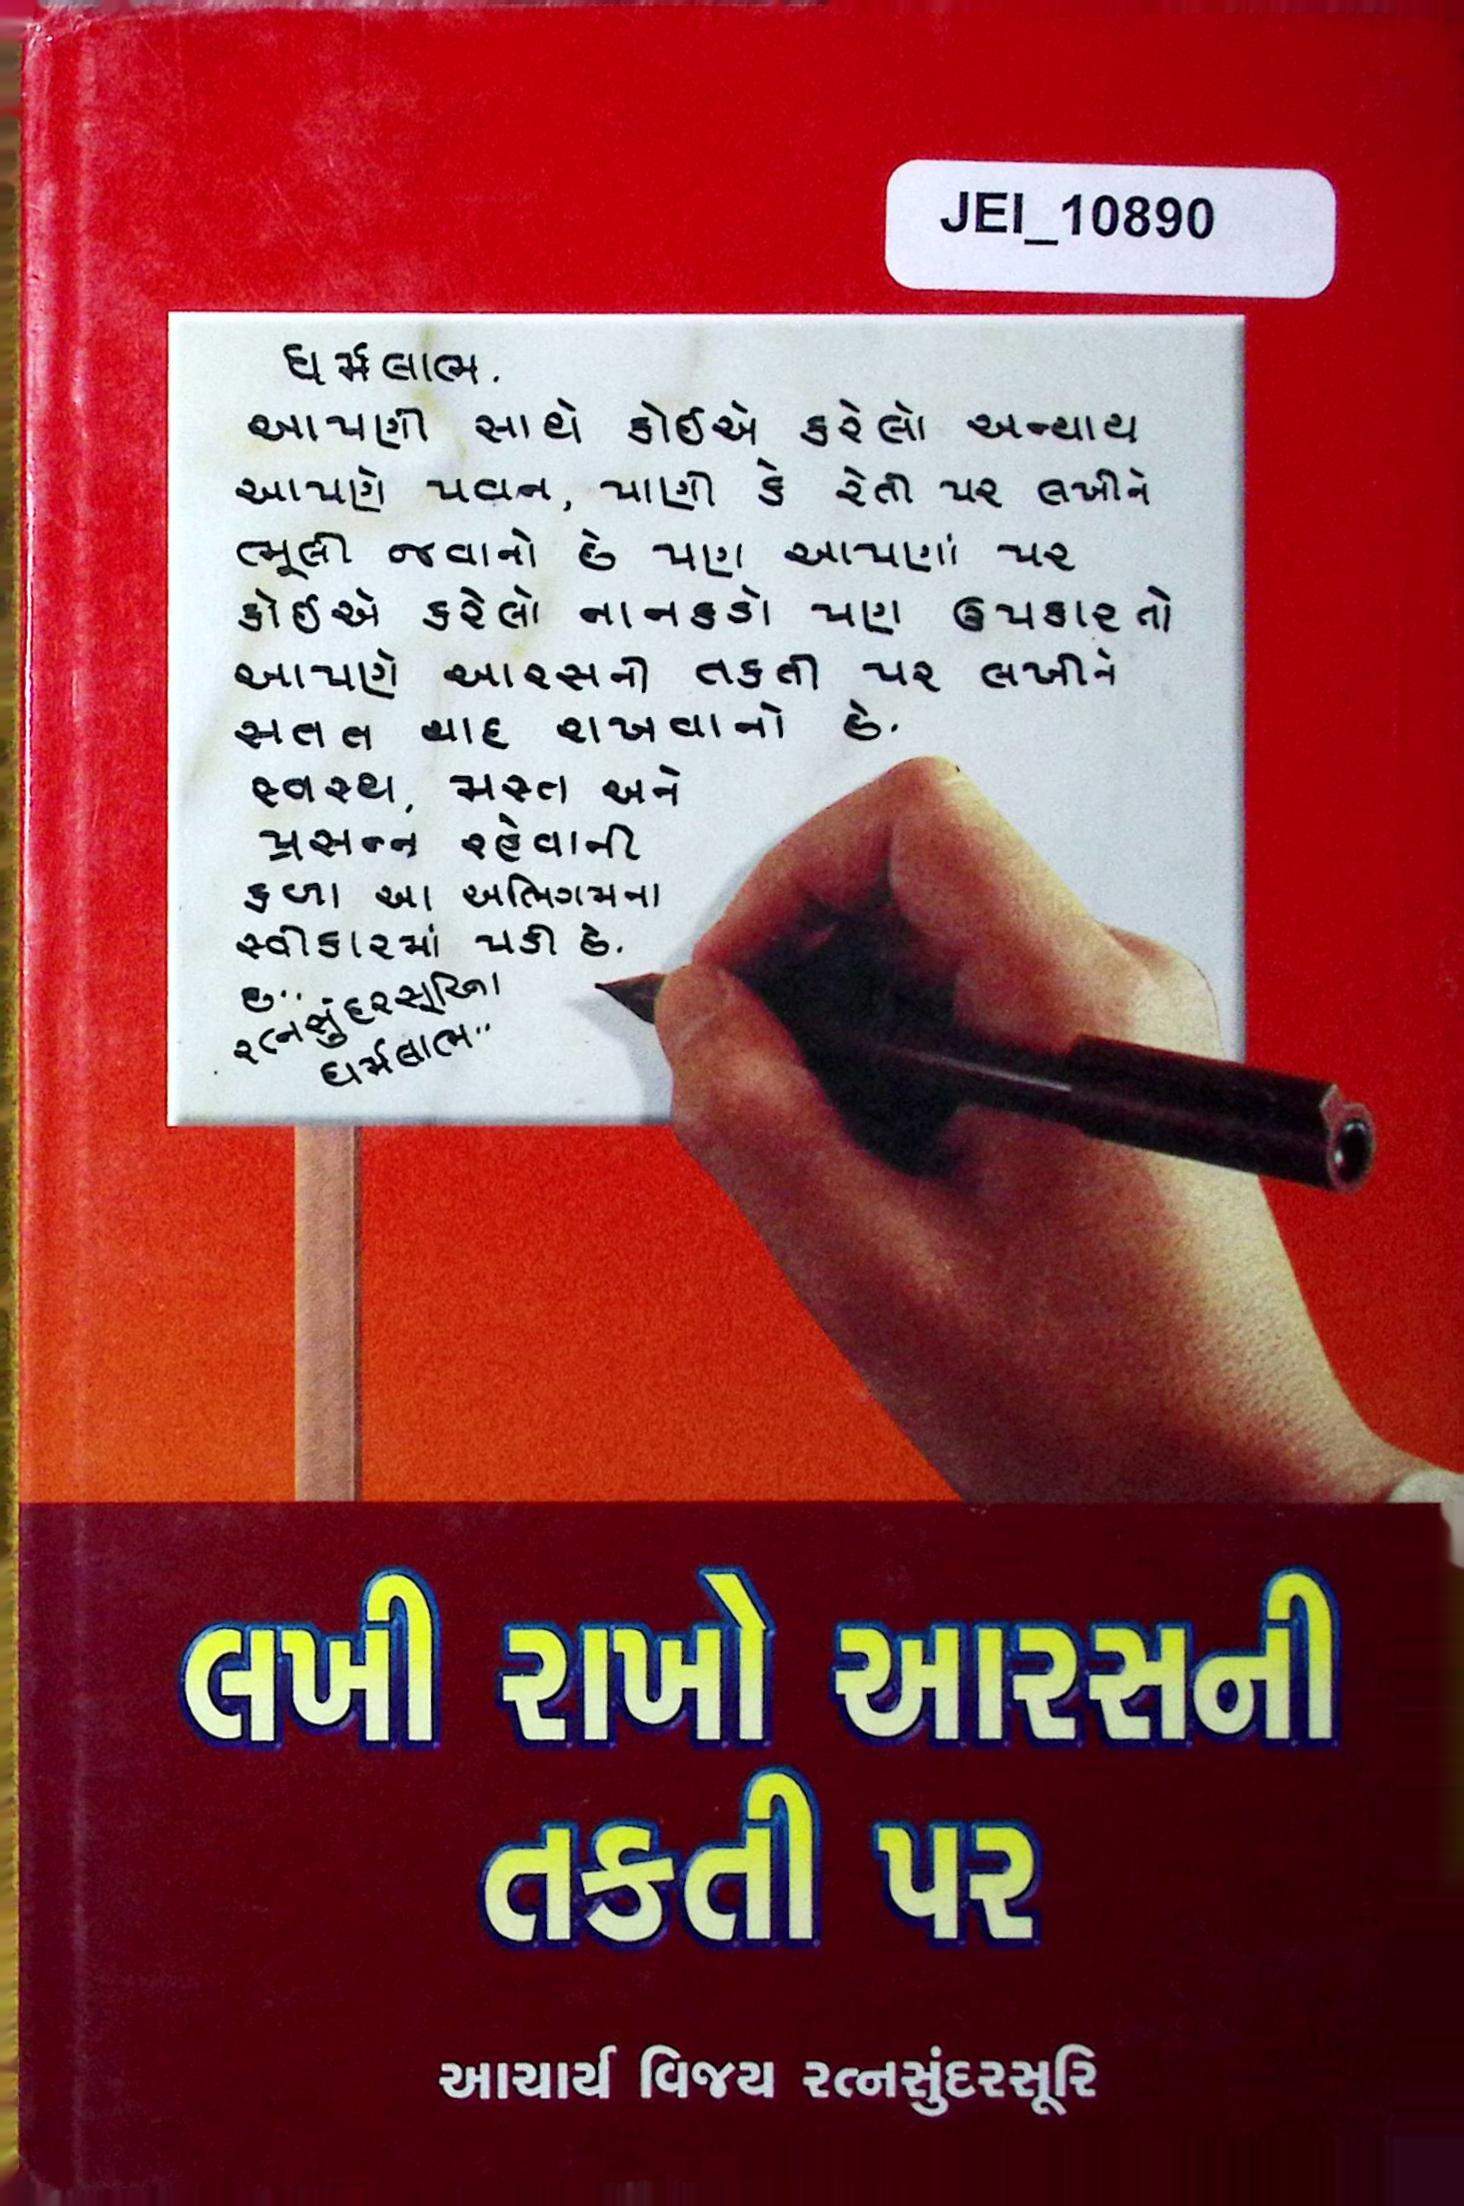 JEI_10890
ધર્મલાભ.
આપણી સાથે કોઈએ કરેલો અન્યાય
આપણે પવન, પાણી કે રેતી પર લખીને
ભૂલી જવાનો છે પણ આપણાં પર
કોઈએ કરેલો નાનકડો પણ ઉપકાર તો
આપણે આરસની તકતી પર લખીને
સતત યાદ રાખવાનો છે.
સ્વસ્થ, મસ્ત અને
પ્રસન્ન રહેવાની
કળા આ અભિગમના
સ્વીકારમાં પડી છે.
રત્નસુંદરસૂરિના
ધર્મલાભ"
લખી રાખો આરસની
તકતી પર
આચાર્ય વિજય રત્નસુંદરસૂરિ